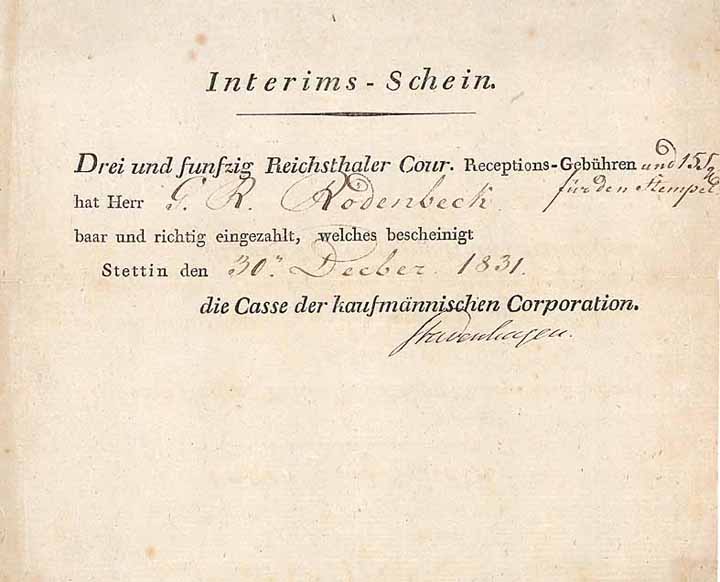 Interims - Schein.
Drei und funfzig Reichsthaler Cour. Receptions-Gebühren und 15
für den Stempel.
hat Herr G. R. Rodenbeck
baar und richtig eingezahlt, welches bescheinigt
Stettin den 30n Decber. 1831.
die Casse der kaufmännischen Corporation.